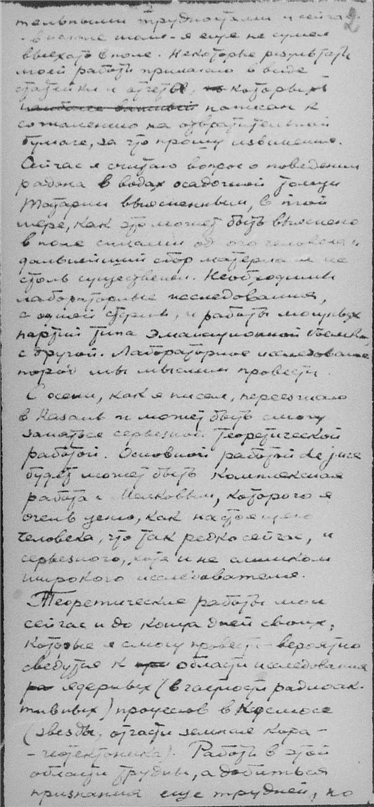 2
тельными трудностями и сейчас
- в начале мая - я еще не сумел
выехать в поле. Некоторые результаты
моей работы прилагаю в виде
статейки и отчета, которых
написан к
сожалению на отвратительной
бумаге, за что прошу извинения.
Сейчас я считаю вопрос о поведении
радона в водах осадочной толщи
Татарии выясненным, в той
мере, как это может быть выяснено
в поле силами одного человека и
дальнейший сбор материала не
столь существенен. Необходимы
лабораторные исследования,
с одной стороны, и работы мощных
партий типа Эманационной съемки
с другой. Лабораторное исследование
мы мыслим провести.
С осени, как я писал, переезжаю
в Казань и может быть смогу
заняться серьезной теоретической
работой. Основной работой de jure
будет может быть комплексная
работа с Меляковым, которого я
очень ценю, как настоящего
человека, что так редко сейчас, и
серьезного, хотя и не слишком
широкого исследователя.
Теоретические работы мои
сейчас и до конца дней своих,
которые я смогу провести - вероятно
сведутся к области исследования
ядерных (в частности радиоак-
тивных) процессов в Космосе
(звезды, отчасти земная кора -
- геотектоника). Работы в этой
области трудны, а добиться
признания еще трудней, но